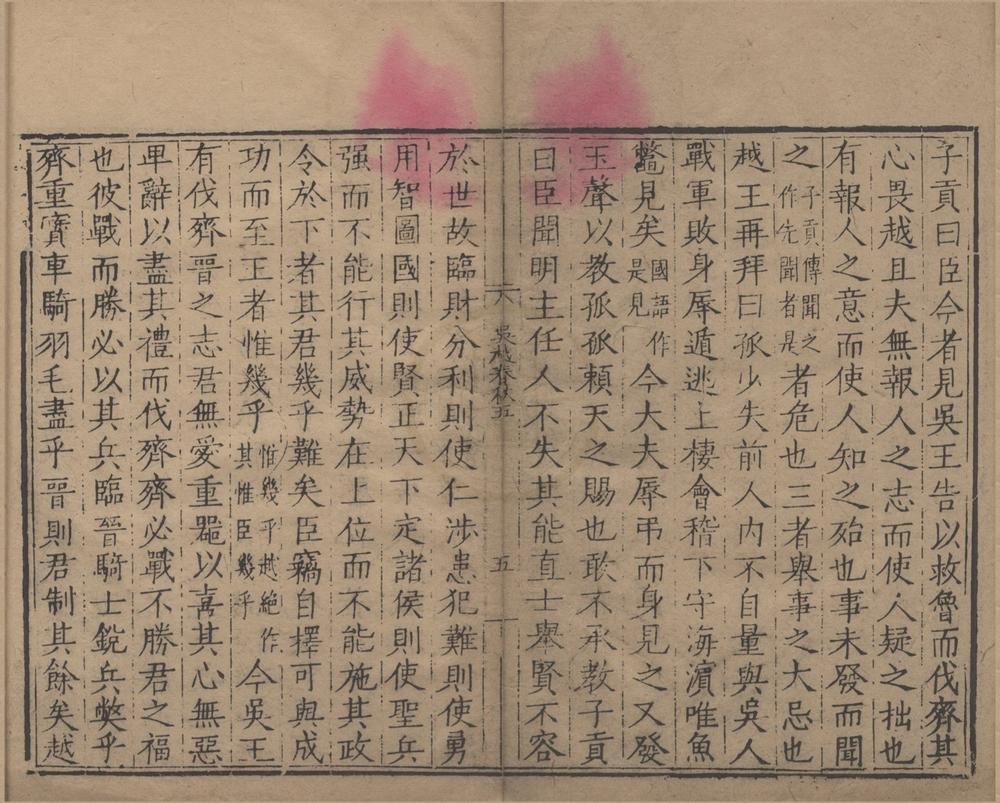 子貢曰臣今者見吳王告以救魯而伐齊其
心畏越且夫無報人之志而使人疑之拙也
有報人之意而使人知之殆也事未發而聞
之子貢傳聞之作先聞者是者危也三者舉事之大忌也
越王再拜曰孤少失前人內不自量與吳人
戰軍敗身辱遁逃上棲會稽下守海濱唯魚
鼈見矣國語作是見今大夫辱弔而身見之又發
玉聲以教孤孤賴天之賜也敢不承教子貢
曰臣聞明主任人不失其能直士舉賢不容
六 吳越春秋五 五
於世故臨財分利則使仁涉患犯難則使勇
用智圖國則使賢正天下定諸侯則使聖兵
强而不能行其威勢在上位而不能施其政
令於下者其君幾乎難矣臣竊自擇可與成
功而至王者惟幾乎惟幾乎越絶作其惟臣幾乎今吳王
有伐齊晉之志君無愛重噐以喜其心無惡
卑辭以盡其禮而伐齊齊必戰不勝君之福
也彼戰而勝必以其兵臨晉騎士銳兵弊乎
齊重寳車騎羽毛盡乎晉則君制其餘矣越